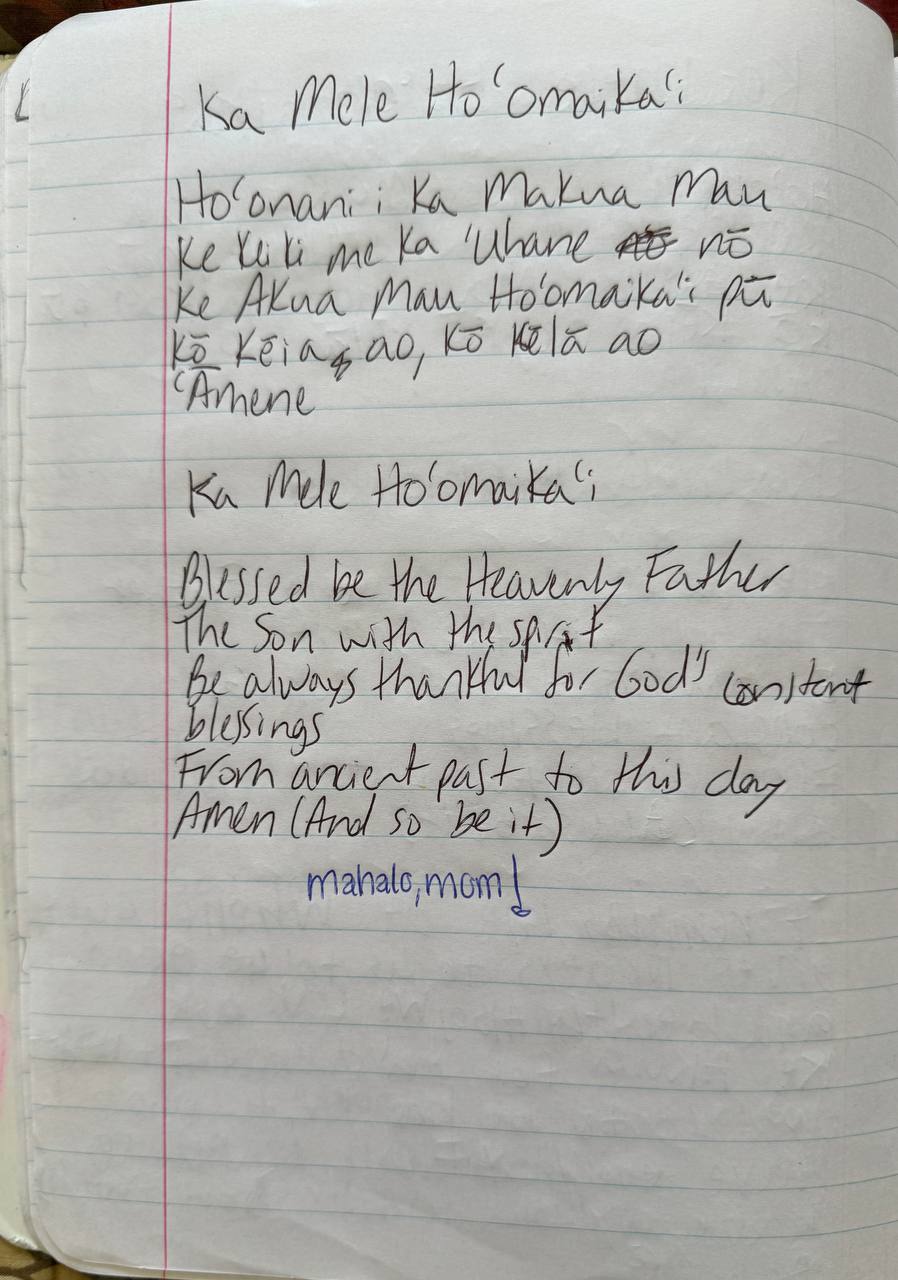 Ka Mele Hoʻomaikaʻi
Hoʻonani i Ka Makua Mau
Ke Keiki me Ka ʻUhane nō
Ke Akua Mau Hoʻomaikaʻi pū
Kō Kēia ao, Kō Kēlā ao
ʻĀmene
Ka Mele Hoʻomaikaʻi
Blessed be the Heavenly Father
The Son with the spirit
Be always thankful for God's constant
blessings
From ancient past to this day
Amen (And so be it)
mahalo, mom!